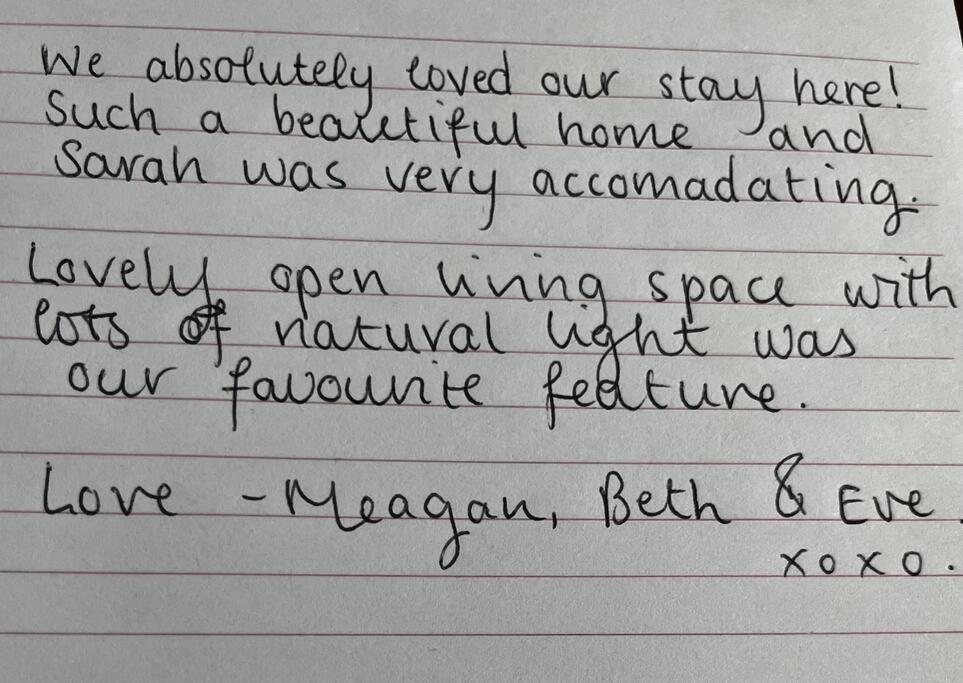 We absolutely loved our stay here!
Such a beautiful home and
Sarah was very accomadating.
Lovely open living space with
lots of natural light was
our favourite feature.
Love - Meagan, Beth & Eve.
xoxo.